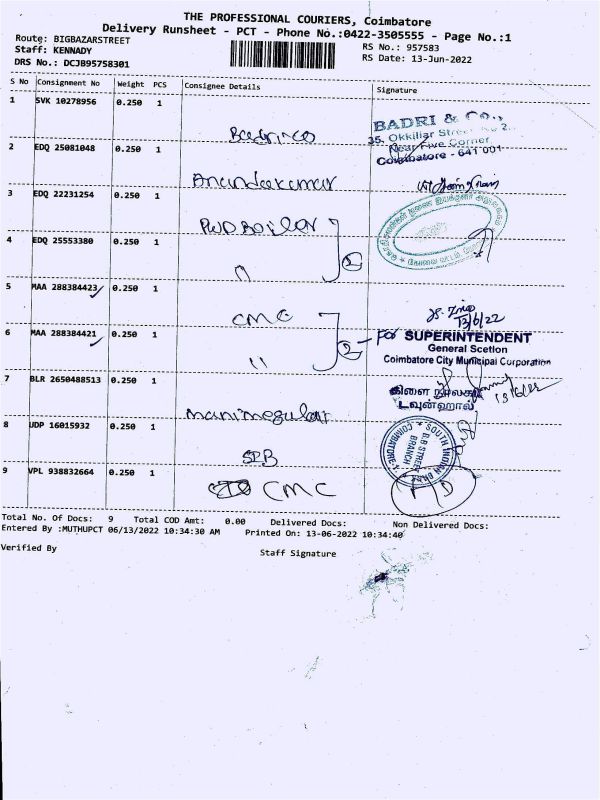 THE PROFESSIONAL COURIERS, Coimbatore
Delivery Runsheet - PCT - Phone No.:0422-3505555 - Page No.:1
Route: BIGBAZARSTREET
Staff: KENNADY
DRS No.: DCJB95758301
RS No.: 957583
RS Date: 13-Jun-2022
S No Consignment No Weight PCS Consignee Details Signature
1 SVK 10278956 0.250 1
BADRI & CO.,
35, Okkiliar Street
Near Five Corner
Coimbatore - 641 001
2 EDQ 25081048 0.250 1
Anandakumar
3 EDQ 22231254 0.250 1
PWD Boilar
4 EDQ 25553380 0.250 1
11 2
5 MAA 288384423 0.250 1
CMC
13/6/22
6 MAA 288384421 0.250 1
11 2
For SUPERINTENDENT
General Scetion
Coimbatore City Municipal Corporation
7 BLR 2650488513 0.250 1
கிளை நூலகம்
டவுன்ஹால்
13/6/22
8 UDP 16015932 0.250 1
SIB
SOUTH INDIAN BANK
B.B STREET
BRANCH
COIMBATORE
9 VPL 938832664 0.250 1
CMC
Total No. Of Docs: 9 Total COD Amt: 0.00 Delivered Docs: Non Delivered Docs:
Entered By :MUTHUPCT 06/13/2022 10:34:30 AM Printed On: 13-06-2022 10:34:40
Verified By
Staff Signature